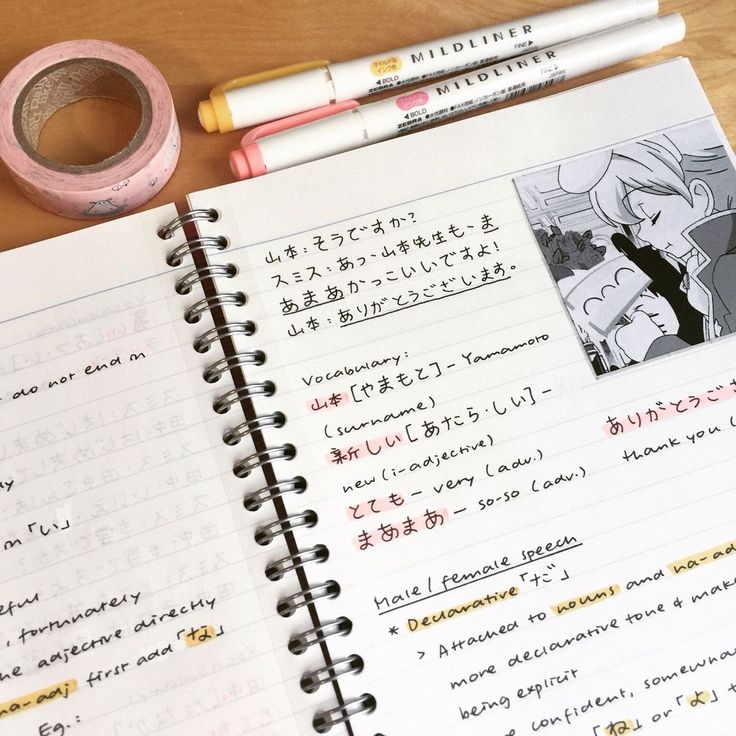 マイルドな
インク色
◀BOLD
ZEBRA
MILDLINER
FINE▶
JAPAN
◀BOLD
ZEBRA
MILDLINER
FINE▶
JAPAN
山本:そうですか?
スミス:あっ、山本先生も、ま
あまあかっこいいですよ!
山本:ありがとうございます。
Vocabulary:
山本[やまもと]- Yamamoto
(surname)
新しい[あたら・しい]-
new (i-adjective)
とても- very (adv.)
まあまあ- so-so (adv.)
ありがとうござ
thank you (
Male/female speech
* Declarative「だ」
> Attached to nouns and na-ad
more declarative tone & make
being explicit
confident, somewha
「ね」or「よ」t
do not end in
「い」
, fortunately
adjective directly
na-adj first add「な」
Eg.: